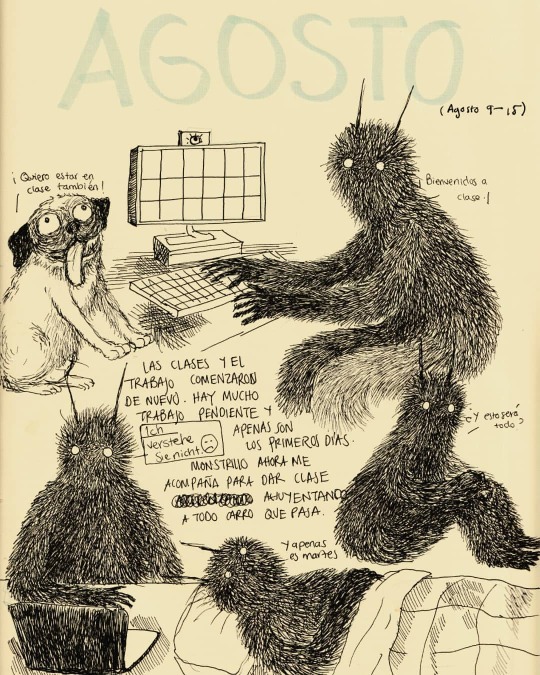 AGOSTO
(Agosto 9-15)
¡Quiero estar en
clase también!
¡Bienvenidos a
clase!
LAS CLASES Y EL
TRABAJO COMENZARON
DE NUEVO. HAY MUCHO
TRABAJO PENDIENTE Y
APENAS SON
LOS PRIMEROS DÍAS.
Ich
verstehe
Sie nicht
MONSTRILIO AHORA ME
ACOMPAÑA PARA DAR CLASE
AHUYENTANDO
A TODO CARRO QUE PASA.
¿Y esto será
todo?
Y apenas
es martes